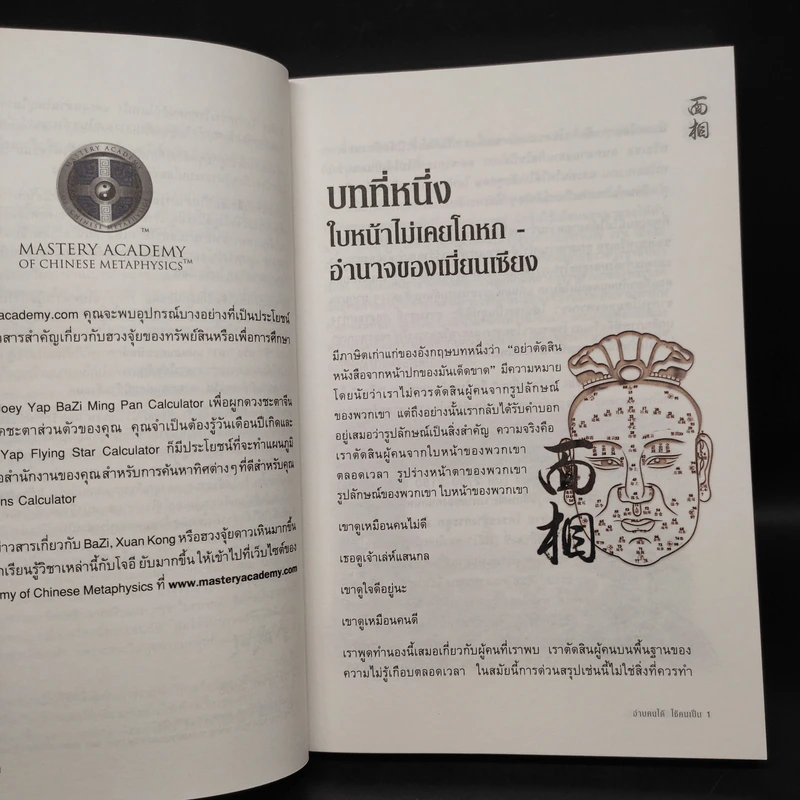 MASTERY ACADEMY
OF CHINESE METAPHYSICS™
academy.com คุณจะพบอุปกรณ์บางอย่างที่เป็นประโยชน์
สารสำคัญเกี่ยวกับฮวงจุ้ยของทรัพย์สินหรือเพื่อการศึกษา
Joey Yap BaZi Ming Pan Calculator เพื่อผูกดวงชะตาจีน
ชะตาส่วนตัวของคุณ คุณจำเป็นต้องรู้วันเดือนปีเกิดและ
Yap Flying Star Calculator ก็มีประโยชน์ที่จะทำแผนภูมิ
สำนักงานของคุณ สำหรับการค้นหาทิศต่างๆ ที่ดีสำหรับคุณ
ns Calculator
ข่าวสารเกี่ยวกับ BaZi, Xuan Kong หรือฮวงจุ้ยดาวเหินมากขึ้น
เรียนรู้วิชาเหล่านี้กับโจอี ยับมากขึ้น ให้เข้าไปที่เว็บไซต์ของ
my of Chinese Metaphysics ที่ www.masteryacademy.com
面相
บทที่หนึ่ง
ใบหน้าไม่เคยโกหก -
อำนาจของเมี่ยนเซียง
มีภาษิตเก่าแก่ของอังกฤษบทหนึ่งว่า “อย่าตัดสิน
หนังสือจากหน้าปกของมันเด็ดขาด” มีความหมาย
โดยนัยว่าเราไม่ควรตัดสินผู้คนจากรูปลักษณ์
ของพวกเขา แต่ถึงอย่างนั้นเรากลับได้รับคำบอก
อยู่เสมอว่ารูปลักษณ์เป็นสิ่งสำคัญ ความจริงคือ
เราตัดสินผู้คนจากใบหน้าของพวกเขา
ตลอดเวลา รูปร่างหน้าตาของพวกเขา
รูปลักษณ์ของพวกเขา ใบหน้าของพวกเขา
面相
เขาดูเหมือนคนไม่ดี
เธอดูเจ้าเล่ห์แสนกล
เขาดูใจดีอยู่นะ
เขาดูเหมือนคนดี
เราพูดทำนองนี้เสมอเกี่ยวกับผู้คนที่เราพบ เราตัดสินผู้คนบนพื้นฐานของ
ความไม่รู้เกือบตลอดเวลา ในสมัยนี้การด่วนสรุปเช่นนี้ไม่ใช่สิ่งที่ควรทำ
อ่านคนได้ ใช้คนเป็น 1